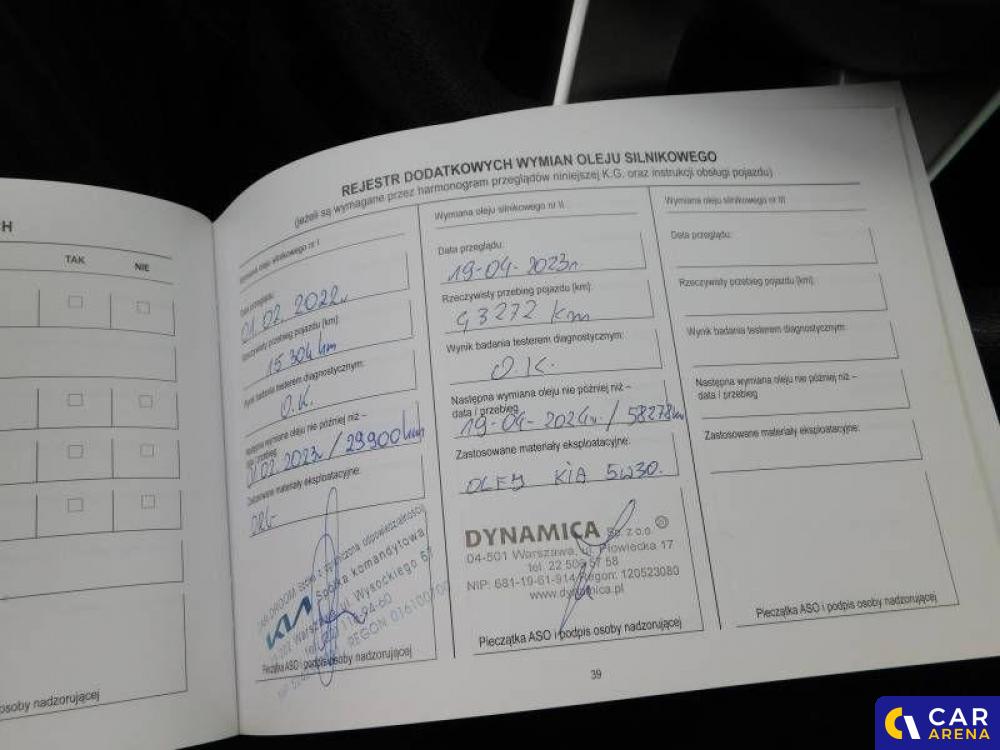 H
TAK
NIE
osoby nadzorującej
REJESTR DODATKOWYCH WYMIAN OLEJU SILNIKOWEGO
(jeżeli są wymagane przez harmonogram przeglądów niniejszej K.G. oraz instrukcji obsługi pojazdu)
Wymiana oleju silnikowego nr I
Data przeglądu:
01.02.2022r
Rzeczywisty przebieg pojazdu [km]:
15 304 km
Wynik badania testerem diagnostycznym:
O.K.
Następna wymiana oleju nie później niż –
data i przebieg
02.2023r / 29900 km
Zastosowane materiały eksploatacyjne:
z ograniczoną odpowiedzialnością
Spółka komandytowa
KIA
Wysockiego 67
REGON
Pieczątka ASO i podpis osoby nadzorującej
Wymiana oleju silnikowego nr II
Data przeglądu:
19-04-2023r
Rzeczywisty przebieg pojazdu [km]:
43272 km
Wynik badania testerem diagnostycznym:
O.K.
Następna wymiana oleju nie później niż –
data i przebieg
19-04-2024r. / 58278 km
Zastosowane materiały eksploatacyjne:
OLEJ KIA 5W30.
DYNAMICA Sp. z o.o.
04-501 Warszawa, ul. Płowiecka 17
tel. 22 506 57 58
NIP: 681-19-61-914 Regon: 120523080
www.dynamica.pl
Pieczątka ASO i podpis osoby nadzorującej
Wymiana oleju silnikowego nr III
Data przeglądu:
Rzeczywisty przebieg pojazdu [km]:
Wynik badania testerem diagnostycznym:
Następna wymiana oleju nie później niż –
data i przebieg
Zastosowane materiały eksploatacyjne:
Pieczątka ASO i podpis osoby nadzorującej
39
CAR
ARENA